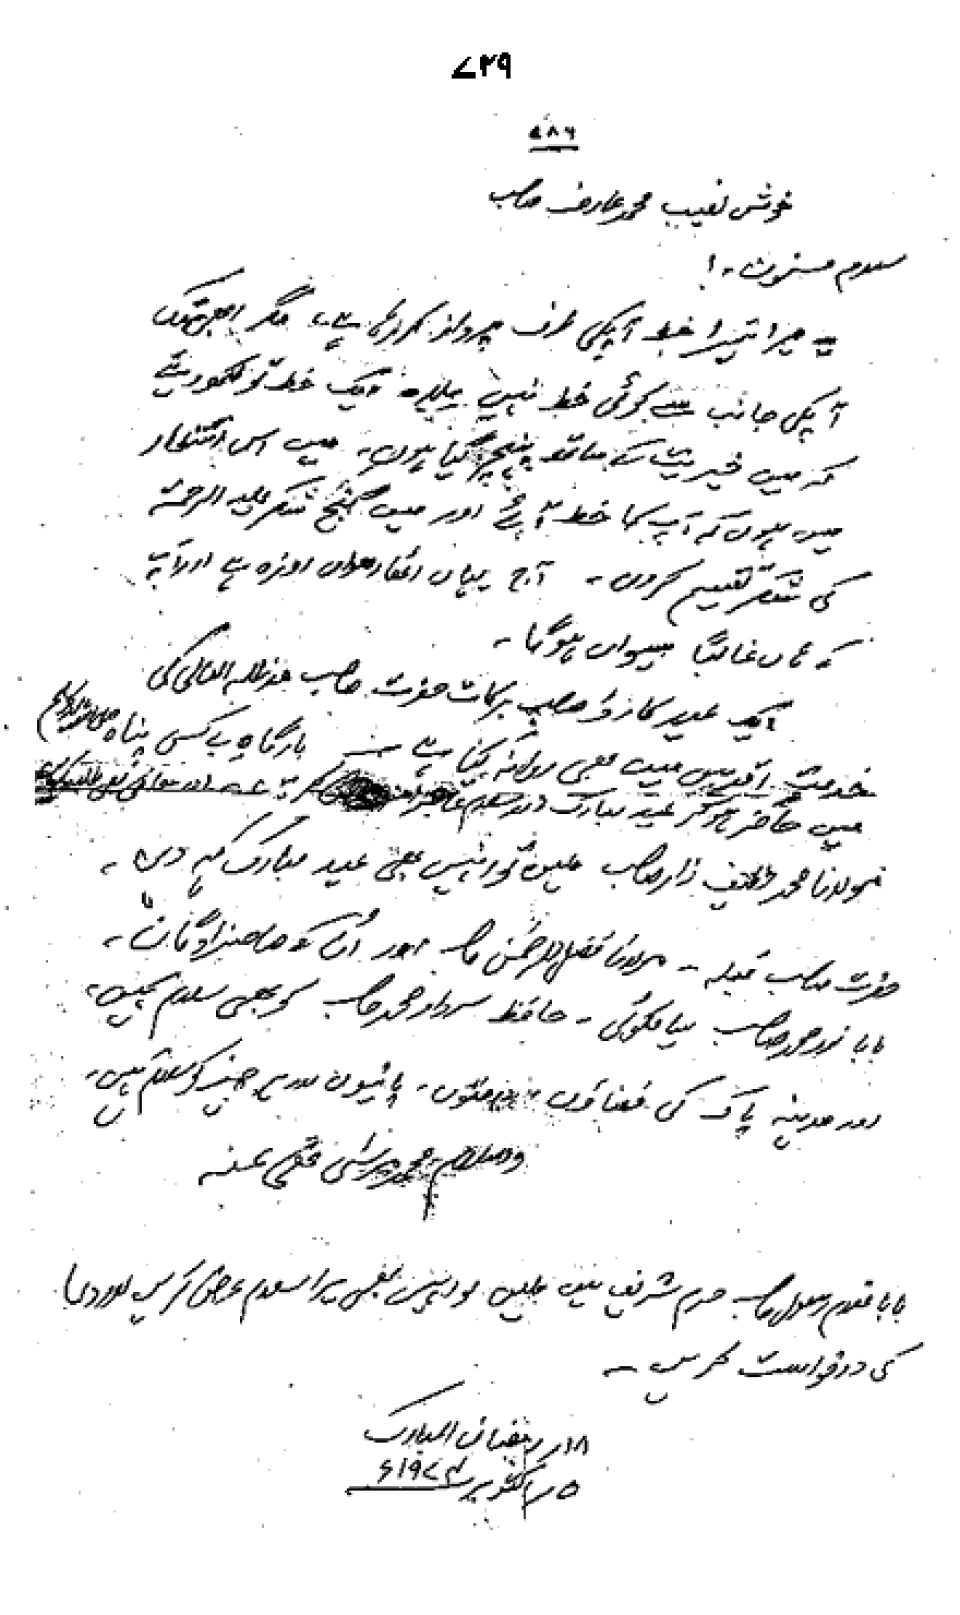 ۷۲۹
۷۸۶
خوش نصیب محمد عارف صاحب
سلام مسنون ۔ !
یہ میرا تیسرا خط آپکی طرف پرواز کر رہا ہے مگر ابھی تک
آپکی جانب سے کوئی خط نہیں ملا۔ ایک خط تو لکھ دیتے
کہ میں خیریت کے ساتھ پہنچ گیا ہوں۔ میں اس انتظار
میں ہوں کہ آپ کا خط آئے اور میں گنج شکر علیہ الرحمۃ
کی شکر تقسیم کروں ۔ آج یہاں اٹھارھواں روزہ ہے اور آپ
کے ہاں غالباً بیسواں ہوگا ۔
ایک عید کارڈ صاحب برکات حضرت صاحب مدظلہ العالی کی
خدمت اقدس میں بھی روانہ کیا ہے ۔ بارگاہ بے کس پناہ
میں حاضر ہوکر عید مبارک اور سلام
مولانا محمد لطیف زار صاحب ملیں تو انہیں بھی عید مبارک کہہ دیں ۔
حضرت صاحب قبلہ ۔ مولانا فضل الرحمٰن صاحب اور اُنکے صاحبزادگان ۔
بابا نور محمد صاحب سیالکوٹی ۔ حافظ سردار محمد صاحب کو بھی سلام کہیں ۔
اور مدینہ پاک کی فضاؤں ۔ پانیوں اور ہر چیز کو سلام کہیں ۔
والسلام محمد عفی عنہ
بابا غلام رسول صاحب حرم شریف میں ملیں تو انہیں بھی میرا سلام عرض کریں اور دعا
کی درخواست کریں ۔
۱۸؍ رمضان المبارک
۵؍ اکتوبر ۱۹۷۴ء